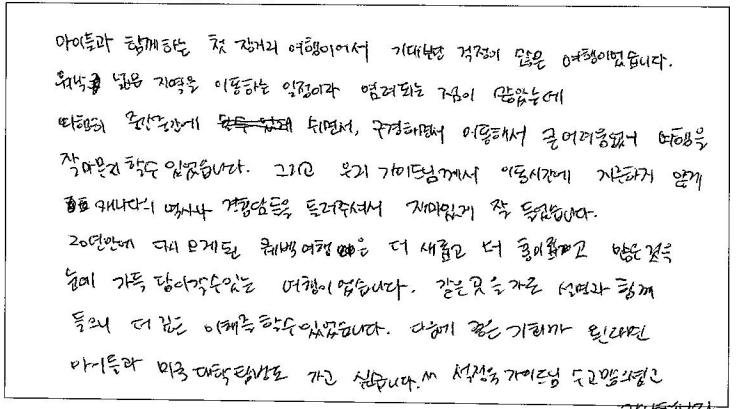 아이들과 함께하는 첫 장거리 여행이어서 기대보단 걱정이 많은 여행이었습니다.
워낙 넓은 지역을 이동하는 일정이라 염려되는 점이 많았는데
다행히 중간중간에 쉬면서, 구경하면서 이동해서 큰 어려움없이 여행을
잘 마무리 할수 있었습니다. 그리고 우리 가이드님께서 이동시간에 지루하지 않게
캐나다의 역사나 경험담들을 들려주셔서 재미있게 잘 들었습니다.
20년만에 다시 오게된 퀘백여행은 더 새롭고 더 흥미롭고 많은 것을
눈에 가득 담아갈수있는 여행이었습니다. 같은 곳을 가도 설명과 함께
들으니 더 깊은 이해를 할수있었습니다. 다음에 좋은 기회가 된다면
아이들과 미국 대학탐방도 가고 싶습니다.^^ 석정욱 가이드님 수고많으셨고